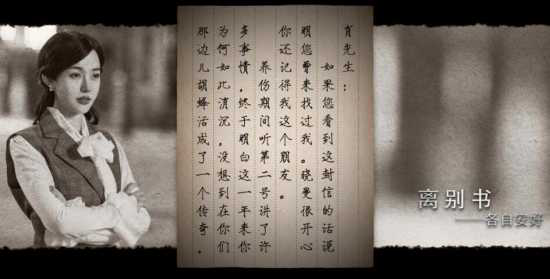 肖先生：
如果您看到这封信的话说
明您曾来找过我。晓曼很开心
你还记得我这个朋友。
养伤期间听第二号讲了许
多事情，终于明白这一年来你
为何如此消沉，没想到在你们
那边儿胡蜂活成了一个传奇。
离别书
——各自安好